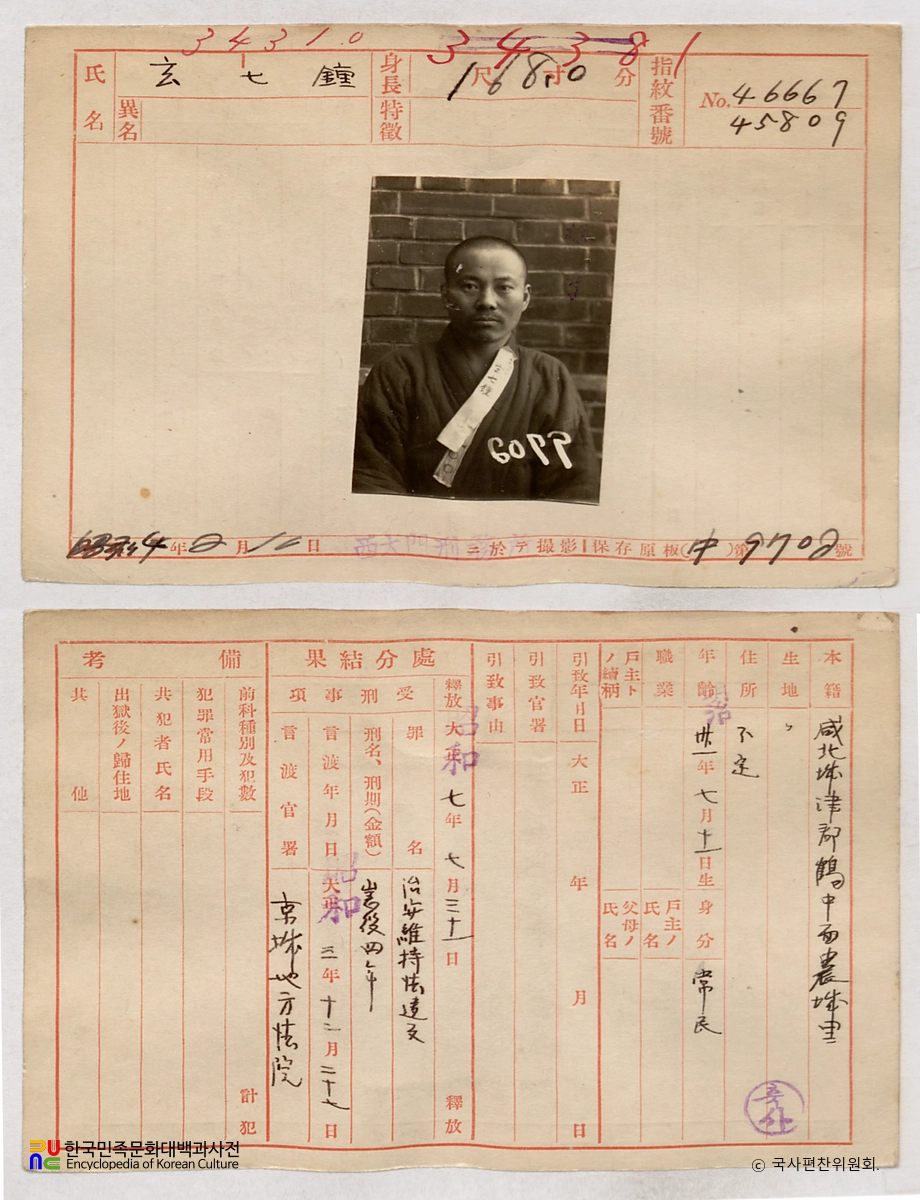 34310
34381
氏名
玄七鐘
異名
身長
尺 寸 分
168.0
特徵
指紋番號
No. 46667
45809
玄七鐘
6099
昭和4年2月12日
西大門刑務所
ニ於テ撮影
保存原板(中)第9702號
本籍
咸北城津郡鶴中面農城里
生地
〃
住所
不定
年齡
明治
卅一年七月十一日生
身分
常民
職業
戶主ノ氏名
戶主トノ續柄
父母ノ氏名
引致年月日
大正 年 月 日
引致官署
引致事由
處分結果
釋放
昭和
七年七月三十一日
釋放
受刑事項
罪名
治安維持法違反
刑名、刑期(金額)
懲役四年
言渡年月日
昭和
三年十二月二十七日
言渡官署
京城地方法院
備考
前科種別及犯數
計 犯
犯罪常用手段
共犯者氏名
出獄後ノ歸住地
其他
한국민족문화대백과사전
Encyclopedia of Korean Culture
ⓒ 국사편찬위원회.